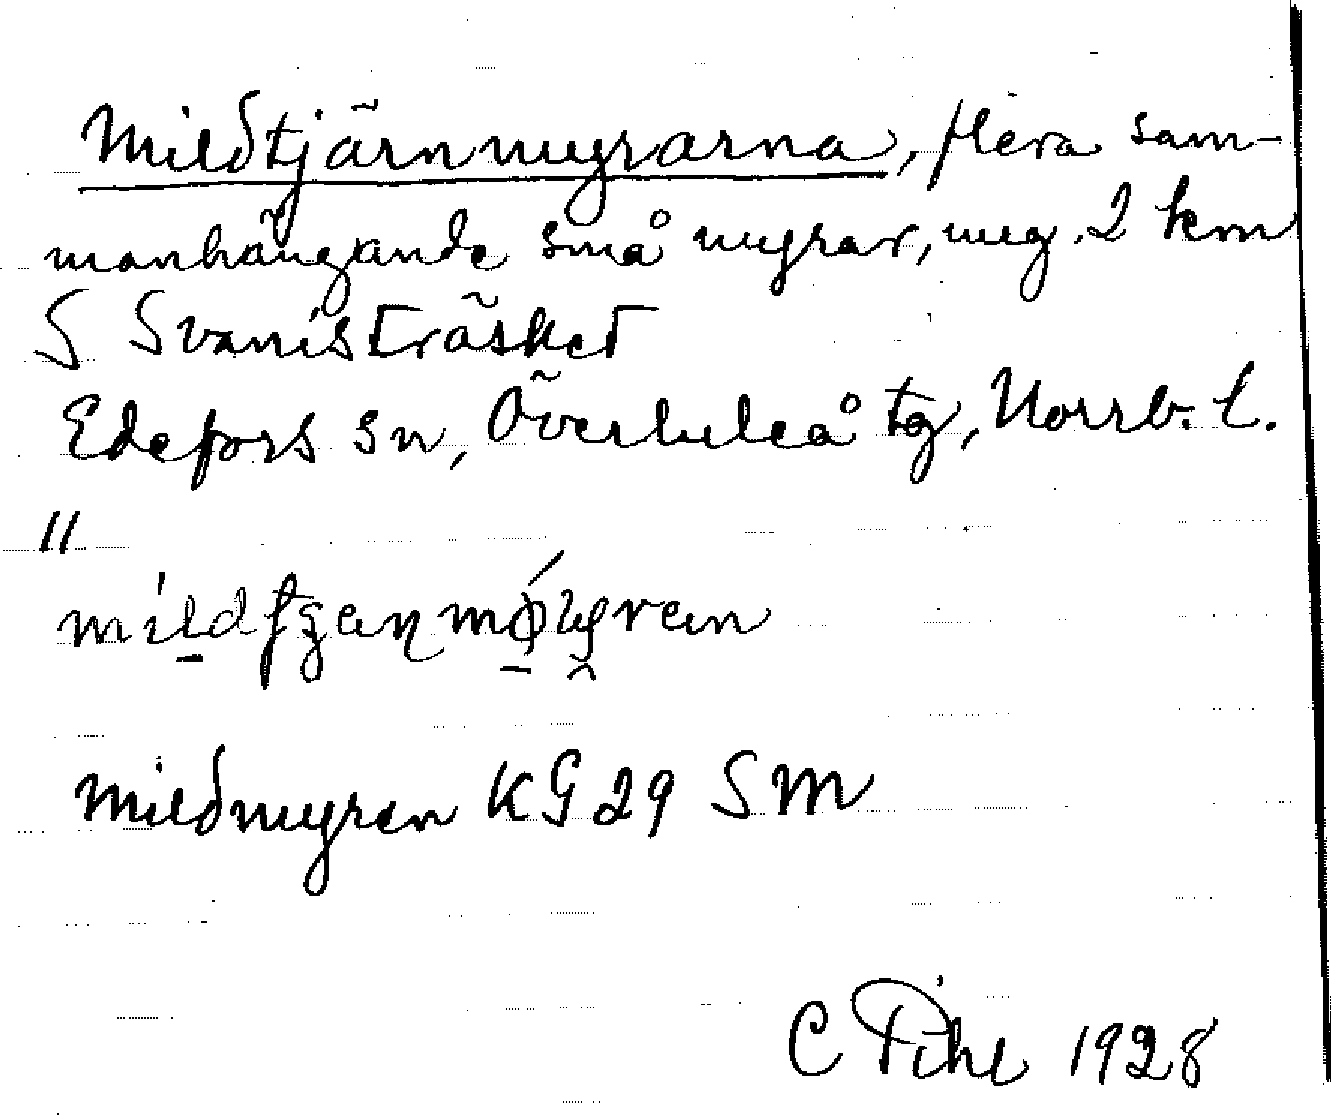 Mildtjärnmyrarna, flera sam-
manhängande små myrar, ung. 2 km
S Svanisträsket
Edefors sn, Överluleå tg, Norrb. l.
//
Mildmyren KG 29 SM
C Pihl 1928